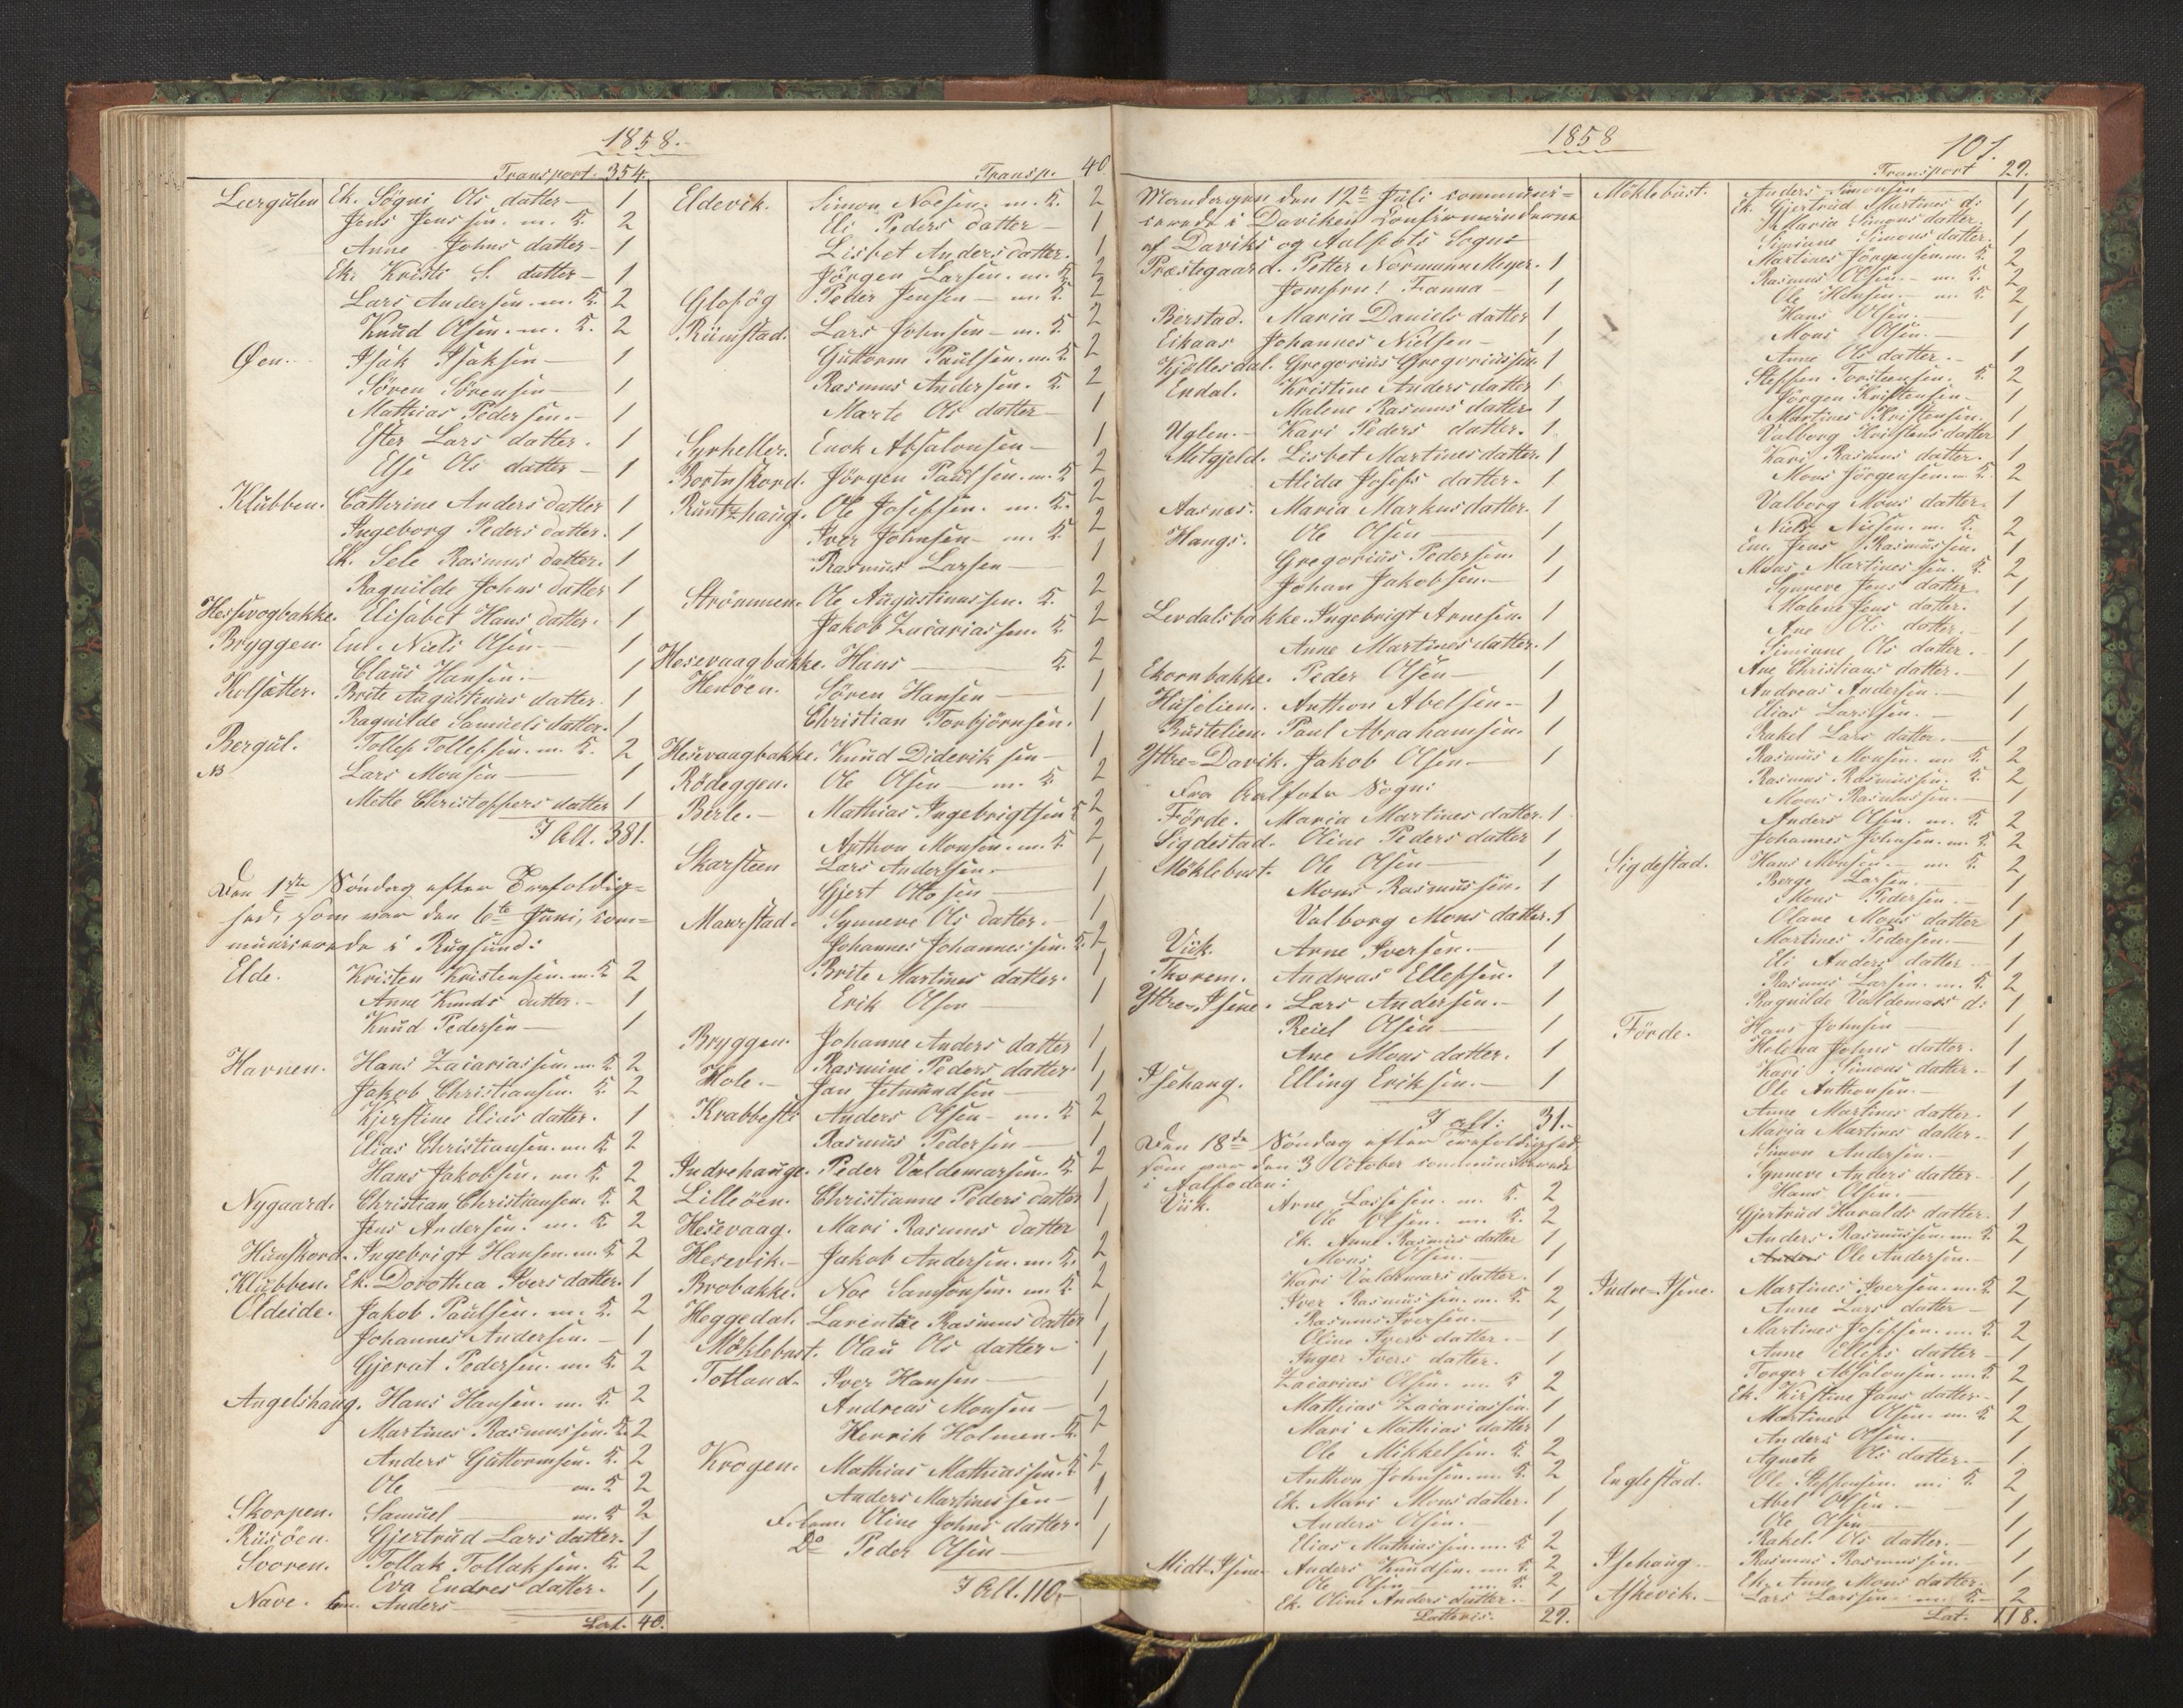 1858.-
Transport. 354.
Leergulen Ek. Sögni Ols datter - 1
Jens Jenssen. m. K. 2
Anne Johns datter - 1
Ek. Kristi S. datter - 1
Lars Andersen. m. K. 2
Knud Olsen. m. K. 2
Öen. Isak Isaksen - 1
Sören Sörensen - 1
Mathias Pedersen. - 1
Ester Lars datter. 1
Else Ols datter - 1
Klubben. Cathrine Anders datter 1
Ingeborg Peders datter. 1
Ek. Sele Rasmus datter. 1
Ragnilde Johns datter 1
Hessevogbakke. Elisabet Hans datter. 1
Bryggen. Em. Niels Olsen - 1
Claus Hansen. - 1
Kolsætter. Brite Augustinus datter. 1
Ragnilde Samuels datter. 1
Bergul. Tollef Tollefsen. m. K. 2
NB Lars Monsen - 1
Mette Christoffers datter 1
I Alt. 381.
Den 1ste Söndag efter Trefoldig=
hed, som var den 6te Juni, com=
municerede i Rugsund:
Elde. Kristen Kristensen. m. K 2
Anne Knuds datter. - 1
Knud Pedersen - 1
Havnen. Hans Zacariassen. m. K 2
Jakob Christiansen. K. 2
Kjerstine Elias datter. 1
Elias Christiansen. m. K 2
Hans Jakobsen. m. K. 2
Nygaard. Christian Christiansen. K. 2
Jens Andersen. m. K 2
Hunskord. Ingebrigt Hansen. m. K 2
Klubben. Ek. Dorothea Ivers datter. 1
Oldeide. Jakob Paulsen. m. K. 2
Johannes Andersen. - 1
Gjerat Pedersen. m. K 2
Angelshaug. Hans Hansen. m. K. 2
Martines Rasmussen. K. 2
Anders Guttormsen. K. 2
Ole - m. K 2
Skorpen. Samuel - m. K 2
Riisöen. Gjertrud Lars datter. 1
Svoren. Tollak Tollaksen. K. 2
Eva Endres datter. 1
Nave. Em. Anders - 1
Lat. 40.
Transp. 40
Eldevik. Simon Noesen. m. K. 2
Eli Peders datter - 1
Lisbet Anders datter. 1
Jörgen Larsen. m. K. 2
Peder Jensen - m. K. 2
Rümstad. Lars Johnsen - m. K. 2
Guttorm Paulsen. m. K. 2
Rasmus Andersen. K. 2
Marte Ols datter - 1
Syrheller. Enok Absalonsen - 1
Bortnskord. Jörgen Paulsen. m. K 2
Runtzhaug. Ole Josefsen. m. K. 2
Iver Johnsen - m. K. 2
Rasmus Larsen - 1
Strömmen. Ole Augustinussen. K. 2
Jakob Zacariassen. K 2
Hesevaagbakke. Hans - K. 2
Henöen. Sören Hansen - 1
Christian Torbjörnsen. 1
Hesevaagbakke. Knud Dideriksen - 1
Rödeggen. Ole Olsen - m. K 2
Berle. - Mathias Ingebrigtsen K 2
Anthon Monsen. m. K 2
Skarsteen Lars Andersen. 1
Gjert Ottosen - 1
Marrstad. Synneve Ols datter. - 1
Johannes Johannessen. K. 2
Brite Martines datter. 1
Erik Olsen - 1
Bryggen. Johanne Anders datter 1
Rasmine Peders datter 1
Hole. - Jan Jetmundsen - 1
Krabbest. Anders Olsen - m. K 2
Rasmus Pedersen - 1
Indrehauge. Peder Valdemarsen. K 2
Lilleöen. Christianne Peders datter 1
Hesevaag. Mari Rasmus datter 1
Hesevik. - Jakob Andersen. m. K. 2
Brobakke. Noe Samsonsen. m. K 2
Heggedal. Larentze Rasmus datter 1
Möklebust. Olau Ols datter - 1
Totland. Iver Hansen - 1
Andreas Monsen - 1
Henrik Holmen - K. 2
Krogen. Mathias Mathiassen. K 2
Anders Martinessen - 1
Oline Johns datter. 1
Do Peder Olsen - 1
I Alt. 110. -
1858
101.
Mandagen den 12te Juli communi=
cerede i Daviken Confirmanderne
af Daviks og Aalfots Sogne
Præstegaard. Petter Normann Meyer. 1
Jomfru! Fanna - 1
Berstad. Maria Daniels datter 1
Eikaas Johannes Nielsen - 1
Kjöllesdal. Gregorius Gregoriussen 1
Endal. Kristine Anders datter 1
Malene Rasmus datter 1
Uglen. - Kari Peders datter. 1
Metgjeld. Lisbet Martines datter. 1
Alida Josefs datter. 1
Aasnæs. Maria Markus datter. 1
Haugs. Ole Olsen - 1
Gregorius Pedersen 1
Johan Jakobsen. - 1
Levdalsbakke. Ingebrigt Arnesen. 1
Anne Martines datter. 1
Ekornbakke. Peder Olsen - 1
Huselien. Anthon Abelsen. - 1
Rustelien. Paul Abrahamsen. 1
Ytre-Davik. Jakob Olsen. - 1
Fra Aalfots Sogn:
Förde. Maria Martines datter. 1
Sigdestad. Oline Peders datter 1
Möklebust. Ole Olsen - 1
Mons Rasmussen. 1
Valborg Mons datter. 1
Viik. Arne Iversen. - 1
Thorem. Andreas Ellefsen. 1
Ytre-Isene. Lars Andersen. - 1
Reiel Olsen - 1
Ane Mons datter. 1
Isehaug. Elling Eriksen. - 1
I alt: 31. -
Den 18de Söndag efter Trefoldighed
som var den 3 October communicerede
i Aalfoden:
Viik. Arne Lassesen. m. K. 2
Ole Olsen. m. K. 2
Ek. Anne Rasmus datter 1
Mons Olsen. - 1
Kari Valdemars datter. 1
Iver Rasmussen. m. K. 2
Rasmus Iversen. - 1
Oline Ivers datter. - 1
Inger Ivers datter. 1
Zacarias Olsen. m. K 2
Mathias Zacariassen. 1
Mari Mathias datter 1
Ole Mikkelsen. K 2
Anthon Johnsen. m. K. 2
Ek. Mari Mons datter. 1
Anders Olsen. - 1
Elias Mathiassen. m. K 2
Midt-Isene. Anders Knudsen. m. K 2
Ole Olsen - m. K. 2
Ek. Oline Anders datter. - 1
Latteris. 29.
Transport 29.
Möklebust. Anders Simonsen - 1
Ek. Gjertrud Martines d: 1
Maria Simons datter. 1
Simiane Simons datter. 1
Martines Jörgensen. m. K 2
Rasmus Olsen - m. K. 2
Ole Hansen. - m. K. 2
Hans Olsen. - 1
Mons Olsen. - 1
Anne Ols datter. - 1
Steffen Torstensen. K. 2
Jörgen Kristensen - 1
Martines Kristensen. 1
Valborg Kristens datter 1
Kari Rasmus datter. 1
Mons Jörgensen. m. K. 2
Valborg Mons datter. 1
Niels Nielsen. m. K. 2
Em. Jens Rasmussen. 1
Mons Martinessen. K. 2
Synneve Jens datter. 1
Malene Jens datter. 1
Ane Ols datter. - 1
Simiane Ols datter. - 1
Ane Christians datter. - 1
Andreas Andersen. - 1
Elias Larssen. - 1
Rakel Lars datter. - 1
Rasmus Monsen. m. K 2
Rasmus Rasmussen. K 2
Mons Rasmussen. - 1
Anders Olsen. m. K. 2
Johannes Johnsen. m. K 2
Sigdestad. Hans Monsen. - m. K 2
Berge Larsen. - 1
Mons Pedersen. - 1
Olane Mons datter 1
Martines Pedersen. - 1
Eli Anders datter - 1
Rasmus Larsen. m. K 2
Ragnilde Valdemars d: 1
Förde. Hans Johnsen - 1
Helena Johns datter. 1
Kari Simons datter. - 1
Ole Anthonsen. - 1
Anne Martines datter. 1
Maria Martines datter. - 1
Simon Andersen. - 1
Synneve Anders datter. 1
Hans Olsen. - 1
Gjertrud Haralds datter. 1
Anders Rasmussen. m. K 2
Anders Ole Andersen. - 1
Indre-Isene. Martines Iversen. m. K 2
Anne Lars datter - 1
Martines Josefsen. m. K. 2
Anne Ellefs datter - 1
Torger Absalonsen. m. K 2
Ek. Kirstine Jans datter. - 1
Martines Olsen. m. K. 2
Anders Olsen. - 1
Agnete Ols datter. - 1
Englestad. Ole Steffensen. m. K 2
Abel Olsen. - 1
Ole Olsen - 1
Rakel Ols datter. - 1
Isehaug. - Rasmus Rasmussen. 1
Ek. Anne Mons datter. - 1
Askevik. - Lars Larssen. - m. K - 2
Lat. 118.